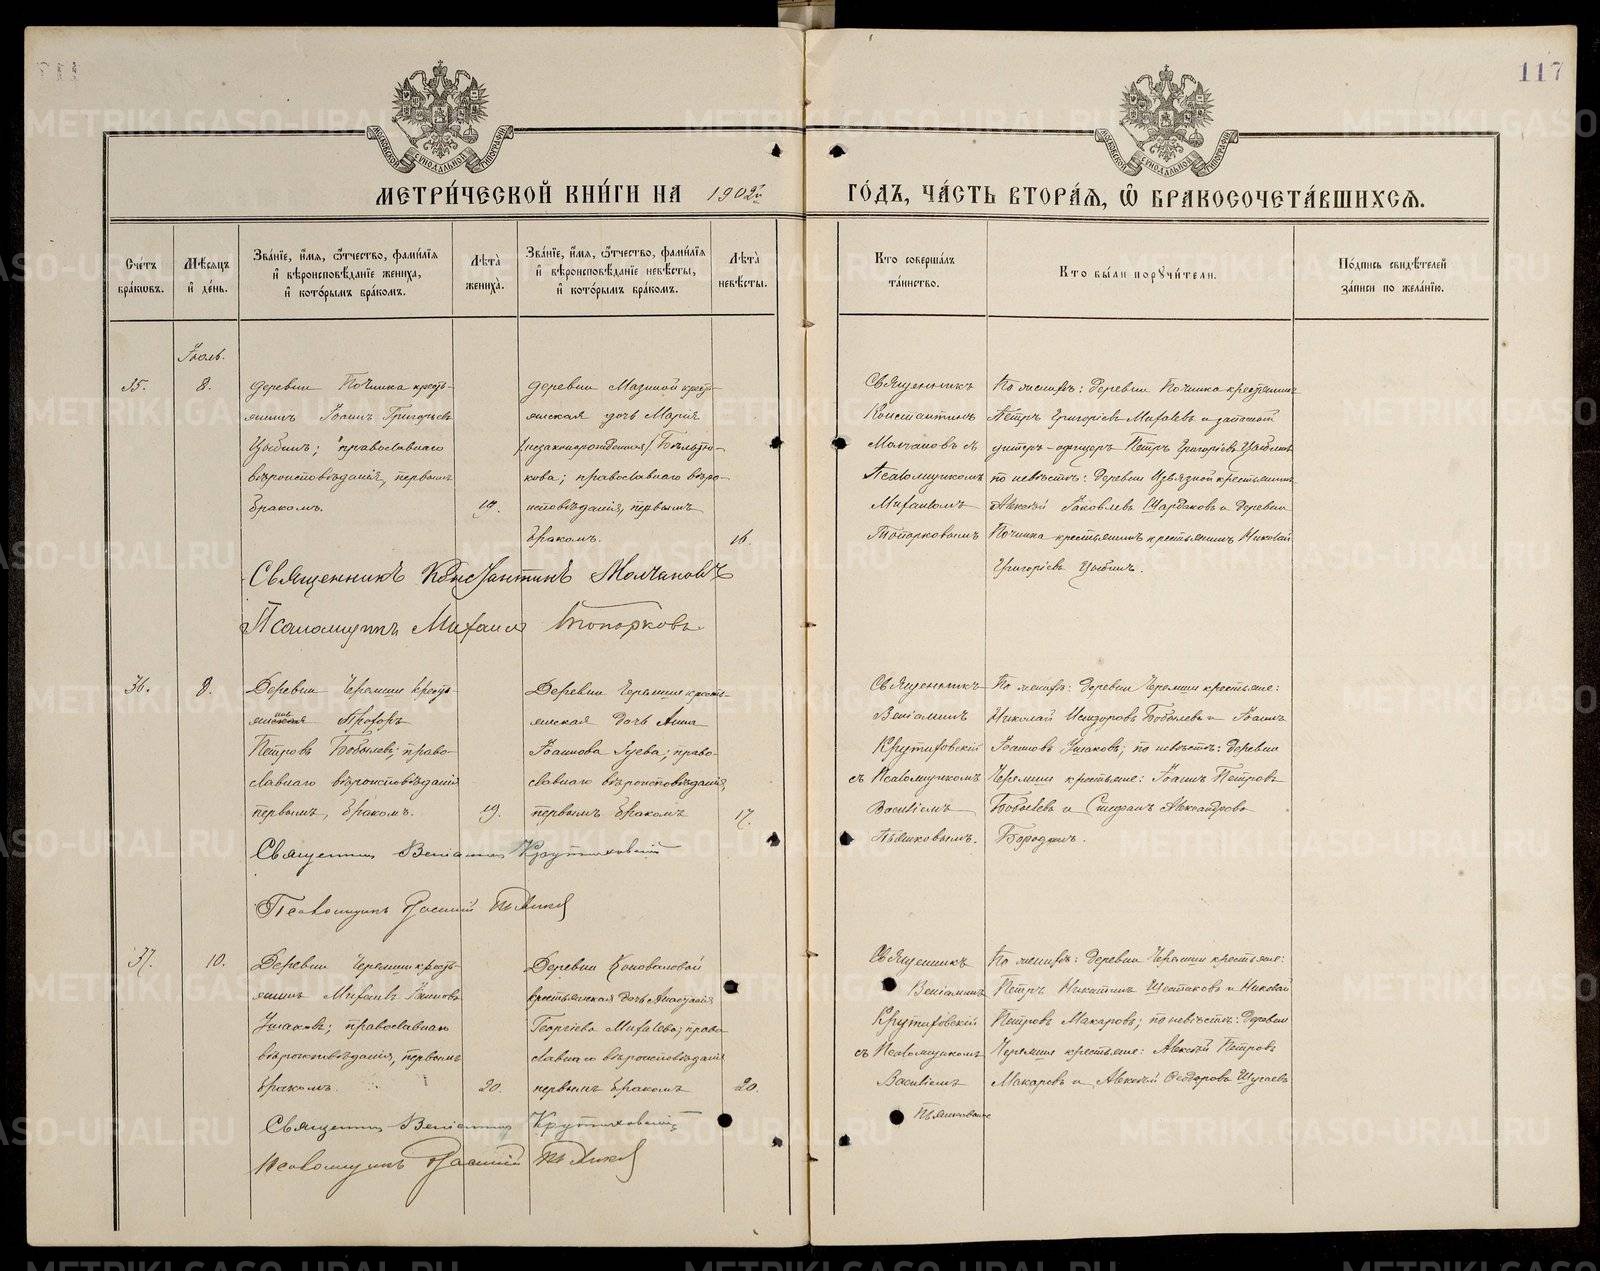 117
МЕТРИ́ЧЕСКОЙ КНИ́ГИ НА 1902й ГО́ДЪ, ЧА́СТЬ ВТОРА́Я, Ѿ БРАКОСОЧЕТА́ВШИХСЯ.
Сче́тъ бра́кωвъ.
Мѣ́сяцъ и҆ де́нь.
Зва́нїе, и҆́мя, ѻ҆́тчество, фами́лїя
и҆ вѣроисповѣ́данїе жениха̀,
и҆ кото́рымъ бра́комъ.
Лѣта̀ жениха̀.
Зва́нїе, и҆́мя, ѻ҆́тчество, фами́лїя
и҆ вѣроисповѣ́данїе невѣ́сты,
и҆ кото́рымъ бра́комъ.
Лѣта̀ невѣ́сты.
Кто соверша́лъ та́инство.
Кто бы́ли порꙋчи́тели.
По́дпись свидѣ́телей за́писи по жела́нїю.
Іюль.
35.
8.
деревни Починка кресть-
янинъ Іоаннъ Григорьевъ
православнаго
вѣроисповѣданія, первымъ
бракомъ.
19.
деревни Мазиной кресть-
янская дочь Марія
/незаконнорожденная/
кова; православнаго вѣро-
исповѣданія, первымъ
бракомъ.
16.
Священникъ
Константинъ
Молчановъ съ
Псаломщикомъ
Михаиломъ
Топорковымъ
По женихѣ: деревни Починка крестьянинъ
Петръ Григорьевъ Михалевъ и запасной
унтеръ-офицеръ Петръ Григорьевъ
по невѣстѣ: деревни крестьянинъ
Алексѣй Яковлевъ и деревни
Починка крестьянинъ крестьянинъ Николай
Григорьевъ
Священникъ Константинъ Молчановъ
Псаломщикъ Михаилъ Топорковъ
36.
8.
Деревни Черемиши кресть-
янинъ Прохоръ
Петровъ Бобылевъ; право-
славнаго вѣроисповѣданія
первымъ бракомъ.
19.
Деревни Черемиши кресть-
янская дочь Анна
Іоаннова право-
славнаго вѣроисповѣданія,
первымъ бракомъ
17.
Священникъ
Веніаминъ
Крутиховскій
съ Псаломщикомъ
Василіемъ
Пьянковымъ.
По женихѣ: деревни Черемиши крестьяне:
Николай Исидоровъ Бобылевъ и Іоаннъ
Іоанновъ Ушаковъ; по невѣстѣ: деревни
Черемиши крестьяне: Іоаннъ Петровъ
Бобылевъ и Стефанъ Александровъ
Бородинъ.
Священникъ Веніаминъ Крутиховскій
Псаломщикъ Василій Пьянковъ
37.
10.
Деревни Черемиши кресть-
янинъ Михаилъ Іоанновъ
Ушаковъ; православнаго
вѣроисповѣданія, первымъ
бракомъ.
20.
Деревни Коноваловой
крестьянская дочь Анастасія
Георгіева Михалева; право-
славнаго вѣроисповѣданія
первымъ бракомъ
20.
Священникъ
Веніаминъ
Крутиховскій
съ Псаломщикомъ
Василіемъ
Пьянковымъ
По женихѣ: деревни Черемиши крестьяне:
Петръ Никитинъ Шестаковъ и Николай
Петровъ Макаровъ; по невѣстѣ: деревни
Черемиши крестьяне: Алексѣй Петровъ
Макаровъ и Алексѣй Ѳеодоровъ
Священникъ Веніаминъ Крутиховскій
Псаломщикъ Василій Пьянковъ
METRIKI.GASO-URAL.RU